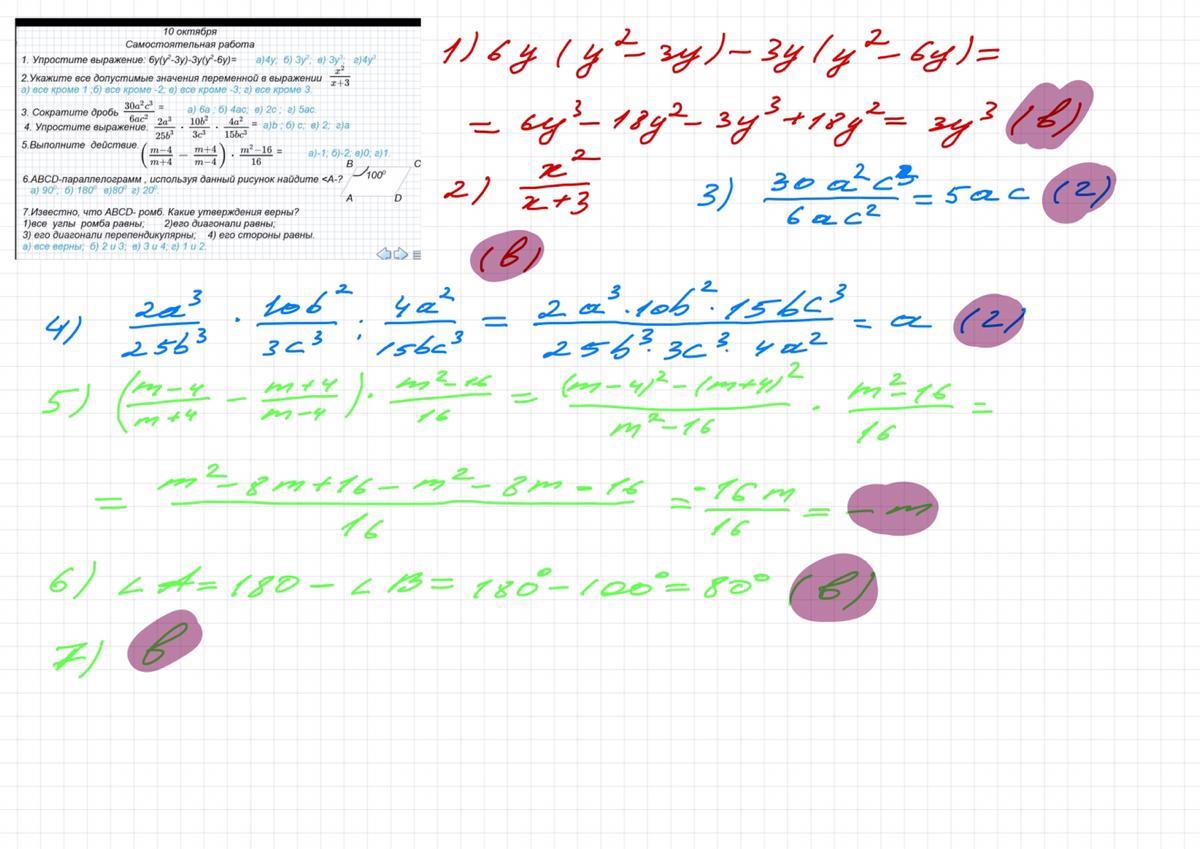 10 октября
Самостоятельная работа
1. Упростите выражение: 6y(y²-3y)-3y(y²-6y)= а)4y; б) 3y²; в) 3y³; г)4y³
2.Укажите все допустимые значения переменной в выражении x²/(x+3)
а) все кроме 1 ;б) все кроме -2; в) все кроме -3; г) все кроме 3.
3. Сократите дробь 30a²c³/6ac² = а) 6а ; б) 4ac; в) 2c ; г) 5ac.
4. Упростите выражение. 2a³/25b³ · 10b²/3c³ · 4a²/15bc³ = а)b ; б) c; в) 2; г)a
5.Выполните действие. ((m−4)/(m+4) − (m+4)/(m−4)) · (m²−16)/16 = а)-1; б)-2; в)0; г)1.
6.ABCD-параллелограмм , используя данный рисунок найдите <A-?
B C
100⁰
A D
а) 90⁰; б) 180⁰ в)80⁰ г) 20⁰.
7.Известно, что ABCD- ромб. Какие утверждения верны?
1)все углы ромба равны; 2)его диагонали равны;
3) его диагонали перпендикулярны; 4) его стороны равны.
а) все верны; б) 2 и 3; в) 3 и 4; г) 1 и 2.
1) 6y(y²−3y)−3y(y²−6y)=
= 6y³−18y²−3y³+18y²= 3y³ (в)
2) x²/(x+3) 3) 30a²c³/6ac² = 5ac (2)
(в)
4) 2a³/25b³ · 10b²/3c³ : 4a²/15bc³ = 2a³·10b²·15bc³/25b³·3c³·4a² = a (2)
5) ((m−4)/(m+4) − (m+4)/(m−4)) · (m²−16)/16 = ((m−4)²−(m+4)²)/(m²−16) · (m²−16)/16 =
= (m²−8m+16−m²−8m−16)/16 = −16m/16 = −m
6) ∠A=180−∠B=180°−100°=80° (в)
7) в